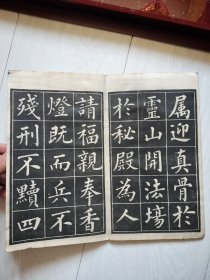 属迎真骨於
靈山開法場
於秘殿為人
請福親奉香
燈既而兵不
殘刑不黷四